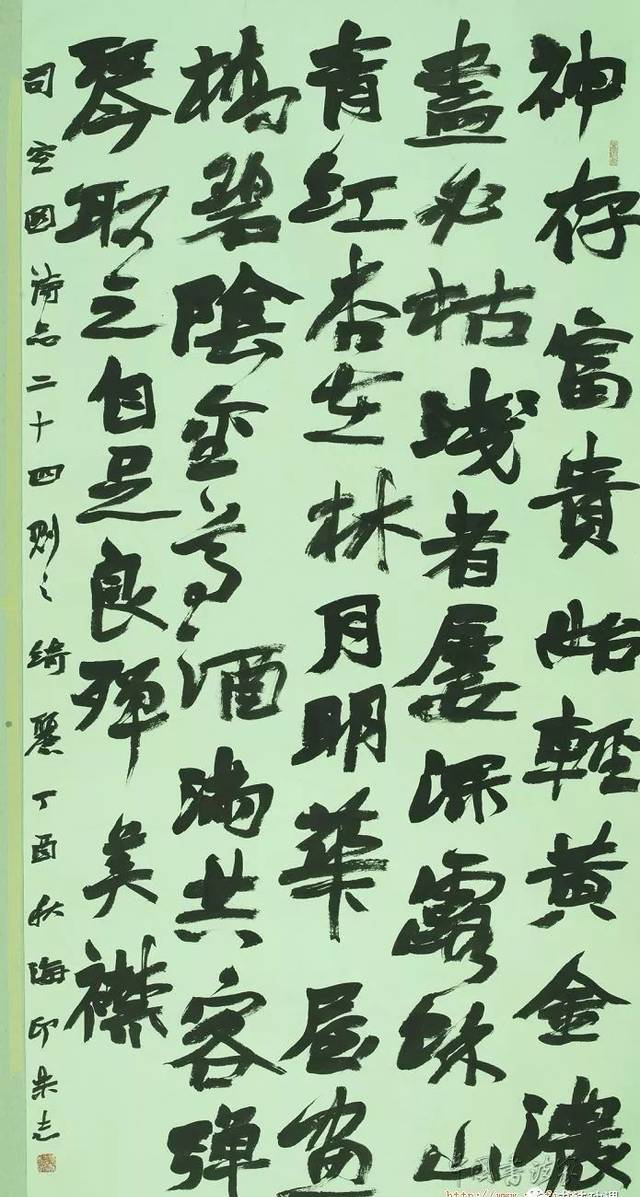 神存富貴始輕黃金濃
盡必枯淺者屢深露餘山
青紅杏在林月明華屋畫
橋碧陰金尊酒滿共客彈
琴取之自足良殫美襟
司空圖詩品二十四則之綺麗丁酉秋海印朱志